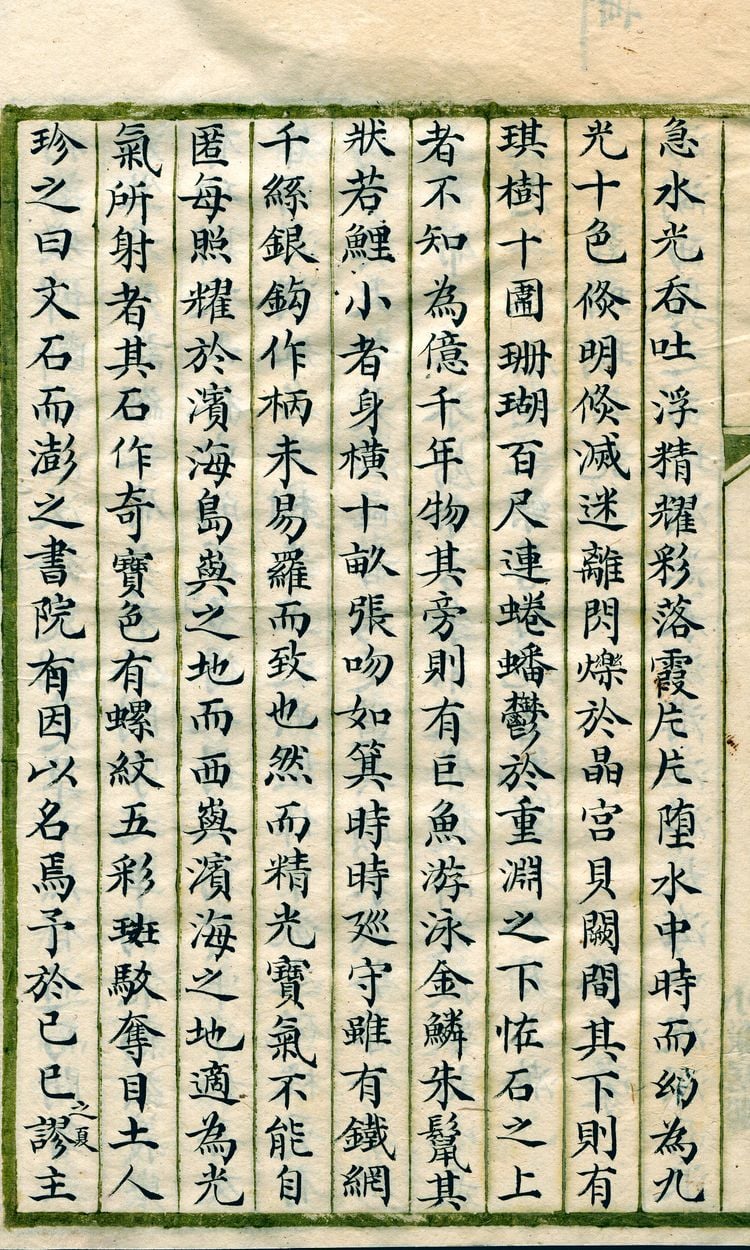 急水光呑吐浮精耀彩落霞片片墮水中時而絢為九
光十色倐明倐滅迷離閃爍於晶宮貝闕間其下則有
琪樹十圍珊瑚百尺連蜷蟠鬱於重淵之下恠石之上
者不知為億千年物其旁則有巨魚游泳金鱗朱鬣其
狀若鯉小者身橫十畝張吻如箕時時廵守雖有鐵網
千絲銀鈎作柄未易羅而致也然而精光寶氣不能自
匿每照耀於濱海島與之地而西與濱海之地適為光
氣所射者其石作奇寶色有螺紋五彩斑駁奪目土人
珍之曰文石而澎之書院有因以名焉予於己巳之夏謬主